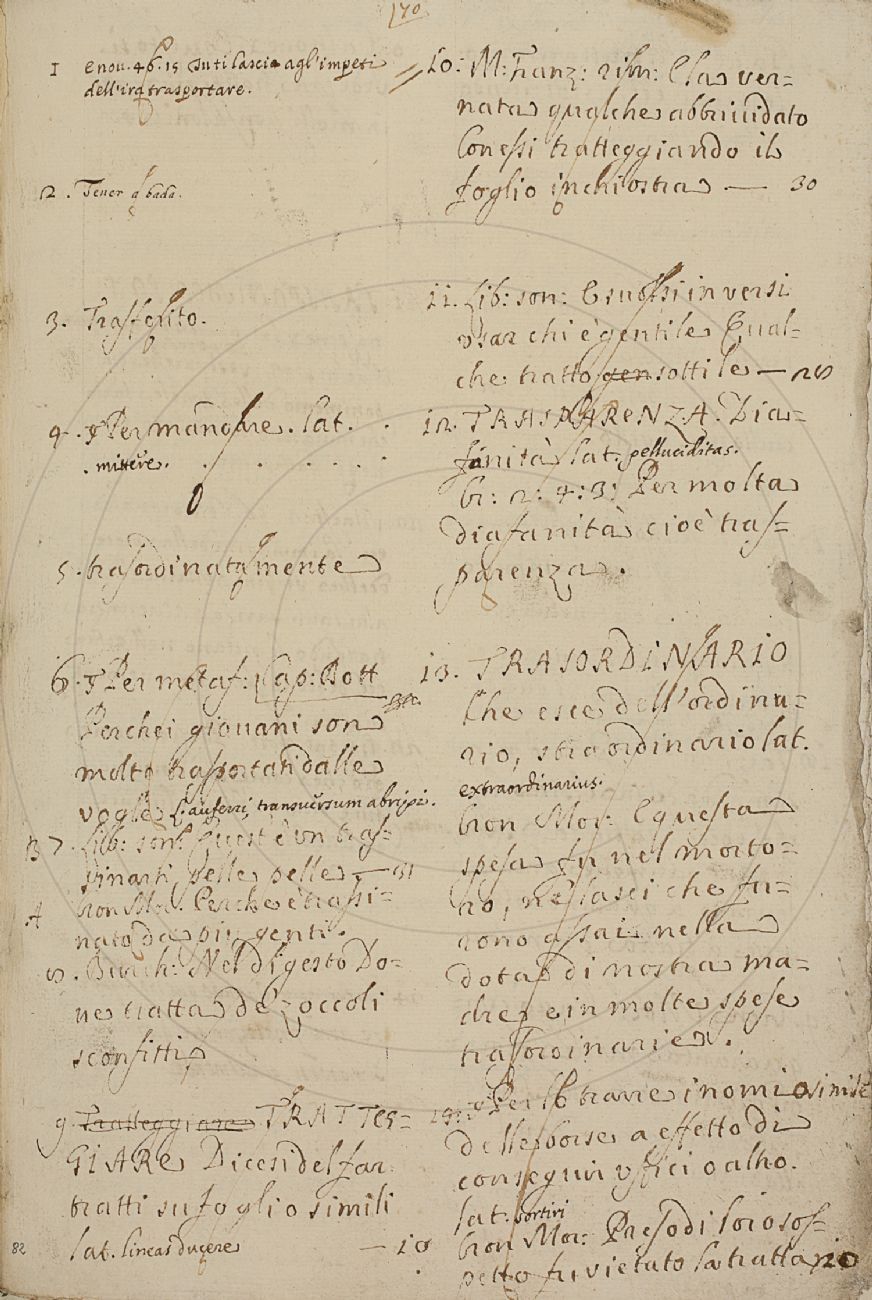 170
1 e nou. 46. 15 su ti lascia agl'impeti
dell'ira trasportare.
2. Tener a bada.
3. Trasferito.
4. Per mandare. lat.
mittere.
5. trasordinatamente
6. Per metaf: Cap: Bott
Perche i giovani son
molto trasportati dalle
voglie L. auferri, transversum abripi.
B 7. Lib: son: Quest'è vn tras-
sinar di pelle pelle — 51
A bron Mor: Perche è trassi-
nato da piu genti.
8. Burch: Nel digesto Do-
ue tratta de' zoccoli
sconfitti
9. Tratteggiare TRATTEG=
GIARE Dicesi del far
tratti su foglio o simili
lat. lineas ducere — 10
82
10. M: Franz: rim: E la ver=
nata qualche abbriuidato
Con essi tratteggiando il
foglio inchiostra — 30
11. Lib: son: E suolsi in versi
vsar chi è gentile Qual=
che tratto gen sottile — 28
12. TRASPARENZA. Dia=
fanità lat. pelluciditas.
br: 2: 4: 3: Per molta
diafanità cioè tras=
parenza.
13. TRASORDINARIO
Che esce dell'ordina=
rio, straordinario lat.
extraordinarius.
bron Mor: E questa
spesa fu nel morto=
ro, ne lasci che fu=
rono assai nella
dota di nostra ma=
dre e in molte spese
trasordinarie.
Per lo trarre i nomi o simile
delle borse a effetto di
conseguir vffici o altro.
lat. sortiri
bron Mor: Preso di loro sos=
petto fu vietato la tratta 20